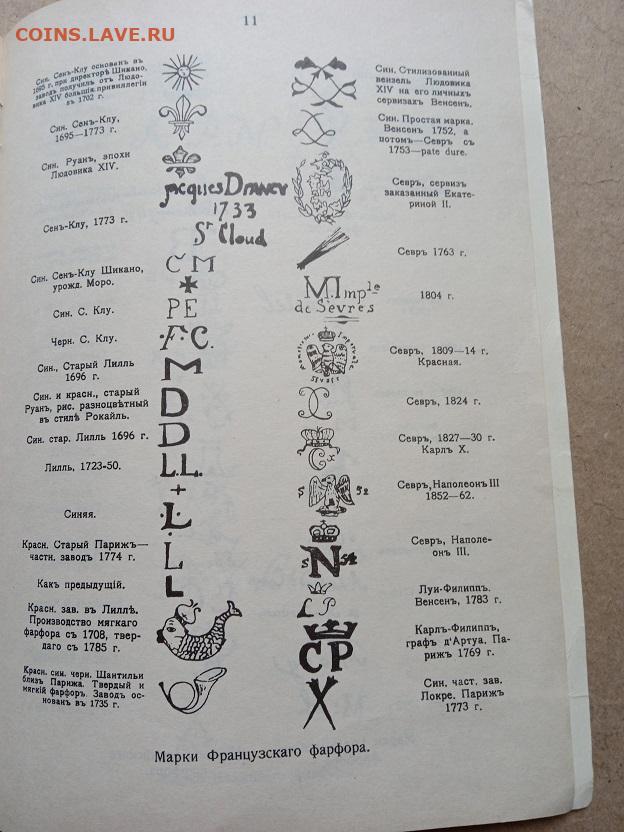 COINS.LAVE.RU
11
Син. Сенъ-Клу основанъ въ
1695 г. при директорѣ Шикано,
заводъ получилъ отъ Людо-
вика XIV большія привиллегіи
въ 1702 г.
Син. Сенъ-Клу,
1695—1773 г.
Син. Руанъ, эпохи
Людовика XIV.
Сенъ-Клу, 1773 г.
Син. Сенъ-Клу Шикано,
урожд. Моро.
Син. С. Клу.
Черн. С. Клу.
Син., Старый Лилль
1696 г.
Син. и красн., старый
Руанъ, рис. разноцвѣтный
въ стилѣ Рокайль.
Син. стар. Лилль 1696 г.
Лилль, 1723-50.
Синяя.
Красн. Старый Парижъ—
частн. заводъ 1774 г.
Какъ предыдущій.
Красн. зав. въ Лиллѣ.
Производство мягкаго
фарфора съ 1708, твер-
даго съ 1785 г.
Красн. син. черн. Шантильи
близъ Парижа. Твердый и
мягкій фарфоръ. Заводъ осно-
ванъ въ 1735 г.
1733
Sᵗ Cloud
C M
PE
·F·C.
M
D
D
L.L.
+
·L·
·L·
L
M. Impˡᵉ
de Sèvres
Sèvres
C
X
S 52
S N 54
LP
CP
X
Син. Стилизованный
вензель Людовика
XIV на его личныхъ
сервизахъ Венсенъ.
Син. Простая марка.
Венсенъ 1752, а
потомъ—Севръ съ
1753—pate dure.
Севръ, сервизъ
заказанный Екате-
риной II.
Севръ 1763 г.
1804 г.
Севръ, 1809—14 г.
Красная.
Севръ, 1824 г.
Севръ, 1827—30 г.
Карлъ X.
Севръ, Наполеонъ III
1852—62.
Севръ, Наполе-
онъ III.
Луи-Филиппъ.
Венсенъ, 1783 г.
Карлъ-Филиппъ,
графъ д'Артуа. Па-
рижъ 1769 г.
Син. част. зав.
Локре. Парижъ
1773 г.
Марки Французскаго фарфора.